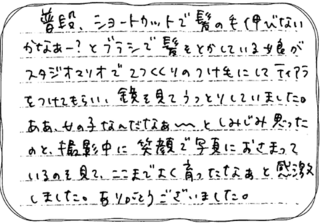 普段、ショートカットで髪の毛伸びない
かなあー？とブラシで髪をとかしている娘が
スタジオマリオで2つくくりのつけ毛にしてティアラ
をつけてもらい、鏡を見てうっとりしていました。
ああ、女の子なんだなぁ〜〜としみじみ思った
のと、撮影中に笑顔で写真におさまって
いるのを見て、ここまでよく育ったなぁと感激
しました。ありがとうございました。